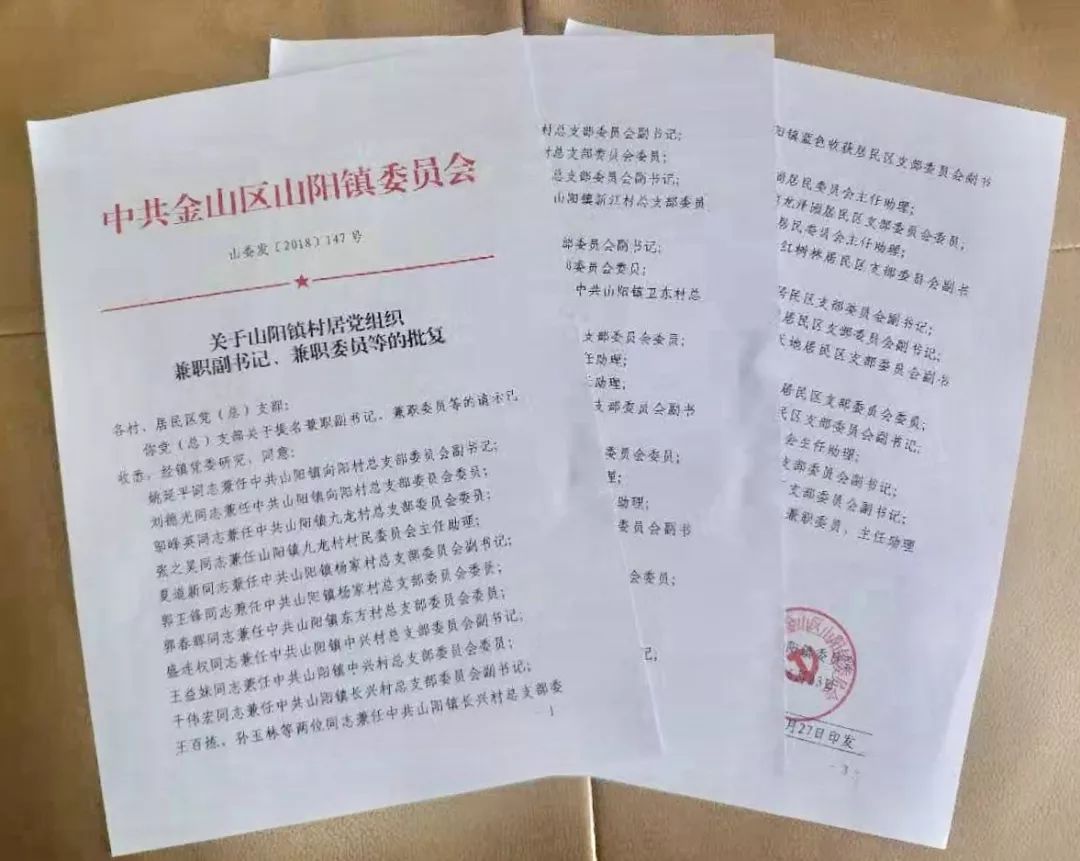 中共金山区山阳镇委员会
山委发〔2018〕147号
关于山阳镇村居党组织
兼职副书记、兼职委员等的批复
各村、居民区党(总)支部:
你党(总)支部关于提名兼职副书记、兼职委员等的请示已
收悉。经镇党委研究,同意:
姚延平同志兼任中共山阳镇向阳村总支部委员会副书记;
刘德光同志兼任中共山阳镇向阳村总支部委员会委员;
邬峰英同志兼任中共山阳镇九龙村总支部委员会委员;
张之昊同志兼任山阳镇九龙村村民委员会主任助理;
夏道新同志兼任中共山阳镇杨家村总支部委员会副书记;
郭王锋同志兼任中共山阳镇杨家村总支部委员会委员;
郭春晖同志兼任中共山阳镇东方村总支部委员会委员;
盛连权同志兼任中共山阳镇中兴村总支部委员会副书记;
王益妹同志兼任中共山阳镇中兴村总支部委员会委员;
干伟宏同志兼任中共山阳镇长兴村总支部委员会副书记;
王百拣、孙玉林等两位同志兼任中共山阳镇长兴村总支部委
- 1
村总支部委员会副书记;
村总支部委员会委员;
总支部委员会副书记;
山阳镇新江村总支部委员
部委员会副书记;
委员会委员;
中共山阳镇卫东村总
支部委员会委员;
任助理;
主任助理;
支部委员会副书
委员会委员;
助理;
委员会副书
会委员;
记;
阳镇蓝色收获居民区支部委员会副书
居民委员会主任助理;
龙泽园居民区支部委员会委员;
居民委员会主任助理;
红树林居民区支部委员会副书
居民区支部委员会副书记;
居民区支部委员会副书记;
天地居民区支部委员会副书
居民区支部委员会委员;
民区支部委员会副书记;
会主任助理;
支部委员会副书记;
支部委员会副书记;
兼职委员、主任助理
金山区山阳镇委员会
阳镇委员
3日
月27日印发
- 3 -